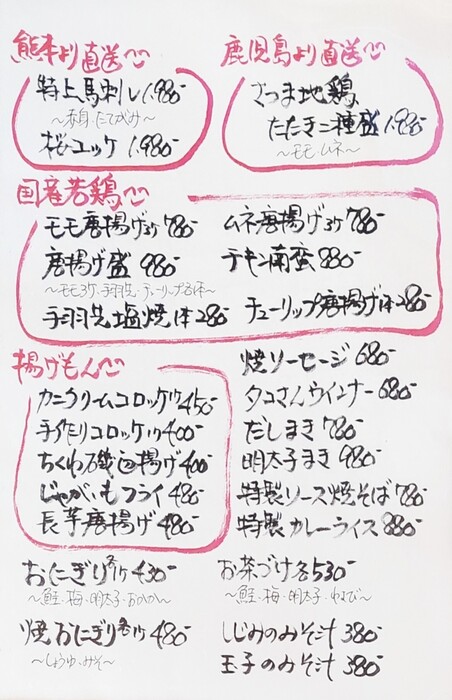 熊本より直送♡
特上馬刺し 1.980-
〜赤身・たてがみ〜
桜ユッケ 1.980-
鹿児島より直送♡
さつま地鶏
たたき二種盛 1.980-
〜モモ・ムネ〜
国産若鶏♡
モモ唐揚げ3ケ 780-
唐揚げ盛 980-
〜モモ3ケ・手羽先・チューリップ各1本〜
手羽先塩焼1本 280-
ムネ唐揚げ3ケ 780-
チキン南蛮 880-
チューリップ唐揚げ1本 280-
揚げもん♡
カニクリームコロッケ1ケ 450-
手作りコロッケ1ケ 400-
ちくわ磯辺揚げ 400-
じゃがいもフライ 480-
長芋唐揚げ 480-
おにぎり各1ケ 430-
〜鮭・梅・明太子・おかか〜
焼おにぎり各1ケ 480-
〜しょうゆ・みそ〜
焼ソーセージ 680-
タコさんウインナー 680-
だしまき 780-
明太子まき 980-
特製ソース焼そば 780-
特製カレーライス 880-
お茶づけ各 530-
〜鮭・梅・明太子・わさび〜
しじみのみそ汁 380-
玉子のみそ汁 380-